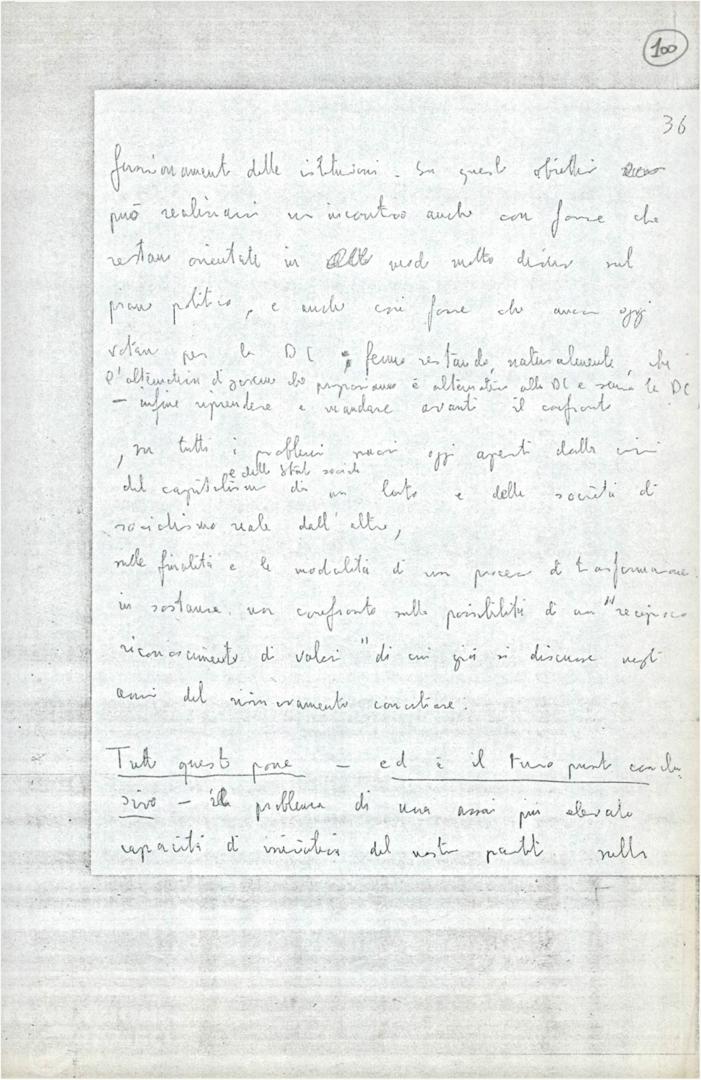 100
36
funzionamento delle istituzioni. Su questi obiettivi
può realizzarsi un incontro anche con forze che
restano orientate in modo molto diverso sul
piano politico, e anche con forze che ancora oggi
votano per la DC, fermo restando, naturalmente, che
l'alternativa di governo che proponiamo è alternativa alla DC e senza la DC
– infine riprendere e mandare avanti il confronto
, su tutti i problemi nuovi oggi aperti dalla crisi
e dello Stato sociale
del capitalismo da un lato e delle società di
socialismo reale dall'altro,
sulle finalità e le modalità di un processo di trasformazione
in sostanza un confronto sulla possibilità di un "reciproco
riconoscimento di valori" di cui già si discusse negli
anni del rinnovamento conciliare.
Tutto questo pone – ed è il terzo punto conclu-
sivo – il problema di una assai più elevata
capacità di iniziativa del nostro partito sulla